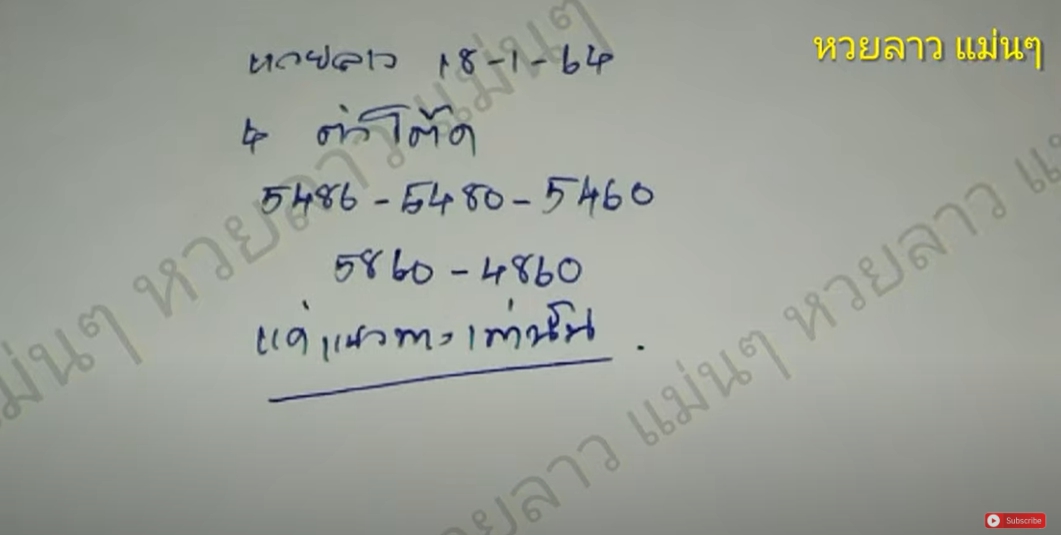 หวยลาว แม่นๆ
หวยลาว 18-1-64
4 ตัวโต๊ด
5486 - 5480 - 5460
5860 - 4860
แค่แนวทางเท่านั้น.
แม่นๆ หวยลาว แม่นๆ
แม่นๆ หวยลาว แม่นๆ หวยลาว
Subscribe